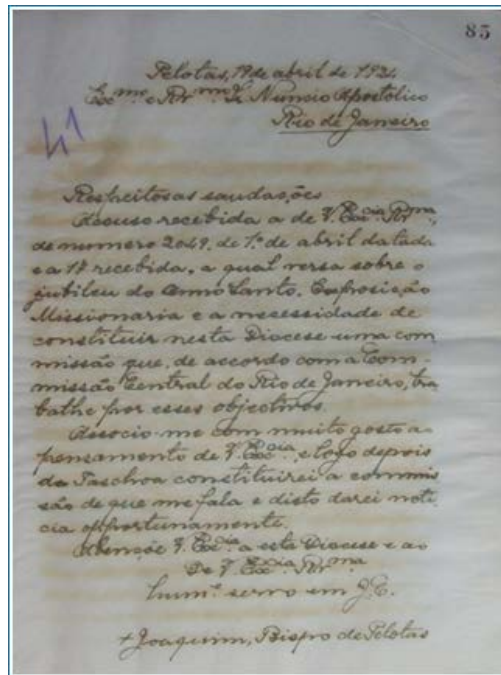 85
Pelotas, 19 de abril de 1924
Exc.mo e Rv.mo Sr. Nuncio Apostolico
Rio de Janeiro
41
Respeitosas saudações
Accuso recebida a de V. Excia Rvma,
de numero 2049, de 1.º de abril datada
e a 17 recebida, a qual versa sobre o
jubileu do Anno Santo, Exposição
Missionaria e a necessidade de
constituir nesta Diocese uma com
missão que, de accordo com a Com-
missão Central do Rio de Janeiro, tra
balhe por esses objectivos.
Associo-me com muito gosto ao
pensamento de V. Excia, e logo depois
da Paschoa constituirei a commis
são de que me fala e disto darei noti
cia opportunamente.
Abençoe V. Excia a esta Diocese e ao
De V. Excia Rvma
hum.e servo em J.C.
+ Joaquim, Bispo de Pelotas